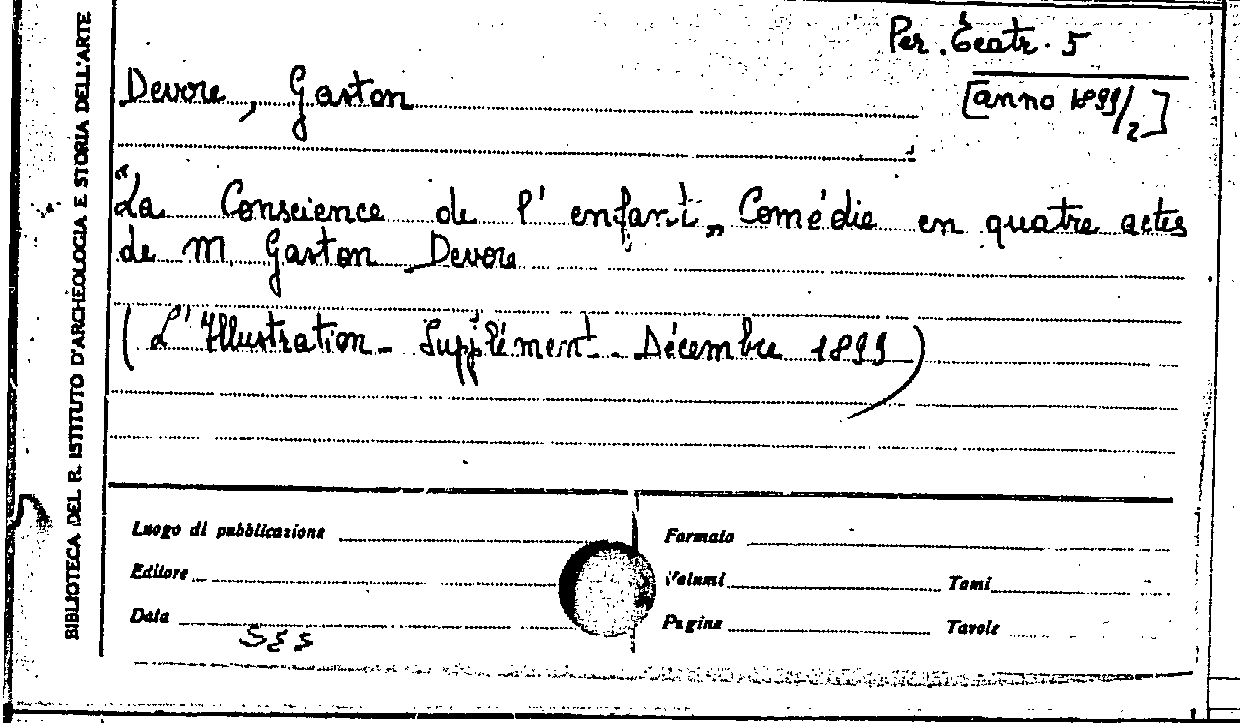 Per. Teatr. 5
Devore, Gaston
[anno 1899/2]
"La Conscience de l'enfant„ Comédie en quatre actes
de M. Gaston Devore
(L'Illustration - Supplément - Décembre 1899)
BIBLIOTECA DEL R. ISTITUTO D'ARCHEOLOGIA E STORIA DELL'ARTE
Luogo di pubblicazione
Formato
Editore
Volumi
Tomi
Data
Pagine
Tavole